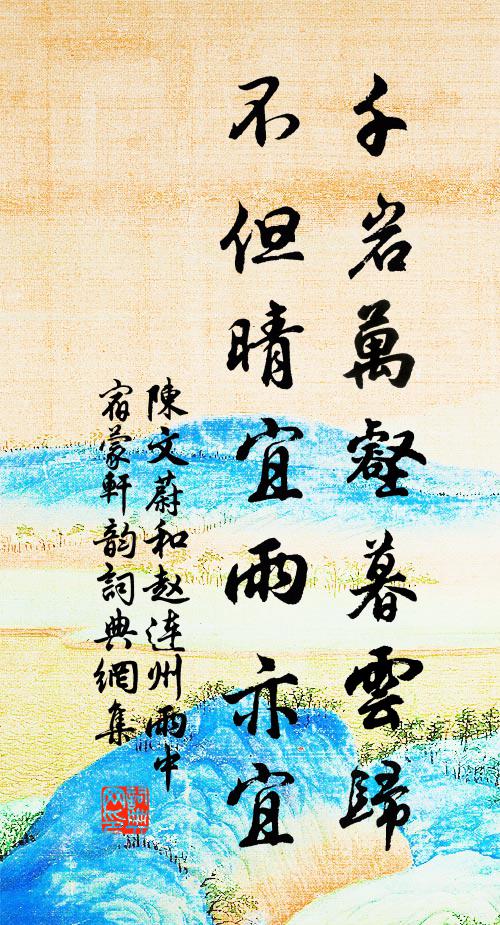 千岩萬壑暮雲歸
不但晴宜雨亦宜
陳文蔚和赵连州雨中
宿蒙軒韵詞典網集